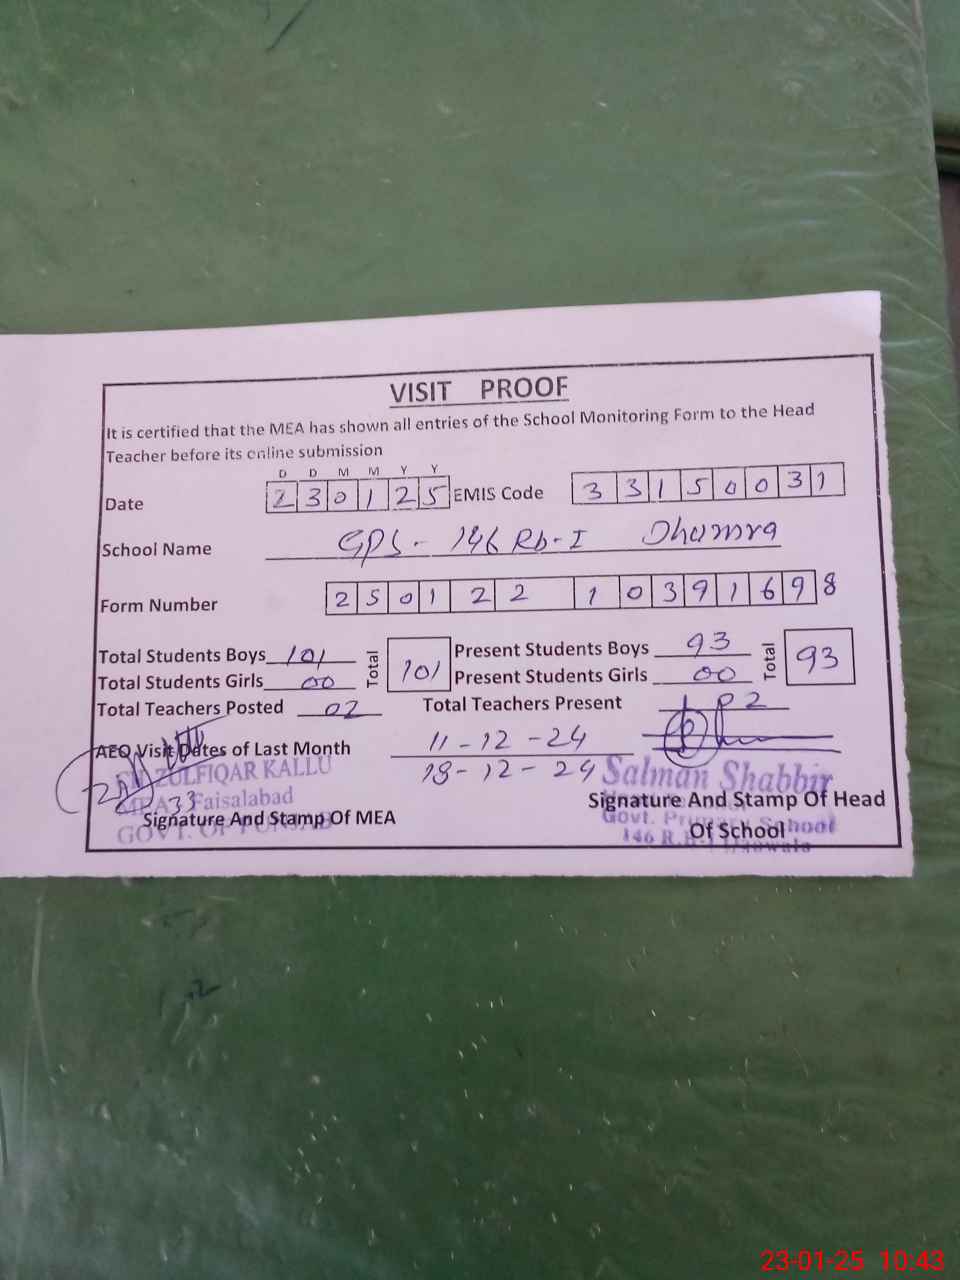 VISIT PROOF
It is certified that the MEA has shown all entries of the School Monitoring Form to the Head
Teacher before its online submission
D D M M Y Y
Date 2 3 0 1 2 5 EMIS Code 3 3 1 5 0 0 3 1
School Name GPS - 146 Rb-I Dhamra
Form Number 2 5 0 1 2 2 1 0 3 9 1 6 9 8
Total Students Boys 101 Total 101 Present Students Boys 93 Total 93
Total Students Girls 00 Present Students Girls 00
Total Teachers Posted 02 Total Teachers Present 02
AEO Visit Dates of Last Month 11-12-24
18-12-24
ZULFIQAR KALLU
33 Faisalabad
GOVT. OF PUNJAB
Signature And Stamp Of MEA
Salman Shabbir
Signature And Stamp Of Head
Govt. Primary School
Of School
146 R.B-I
23-01-25 10:43